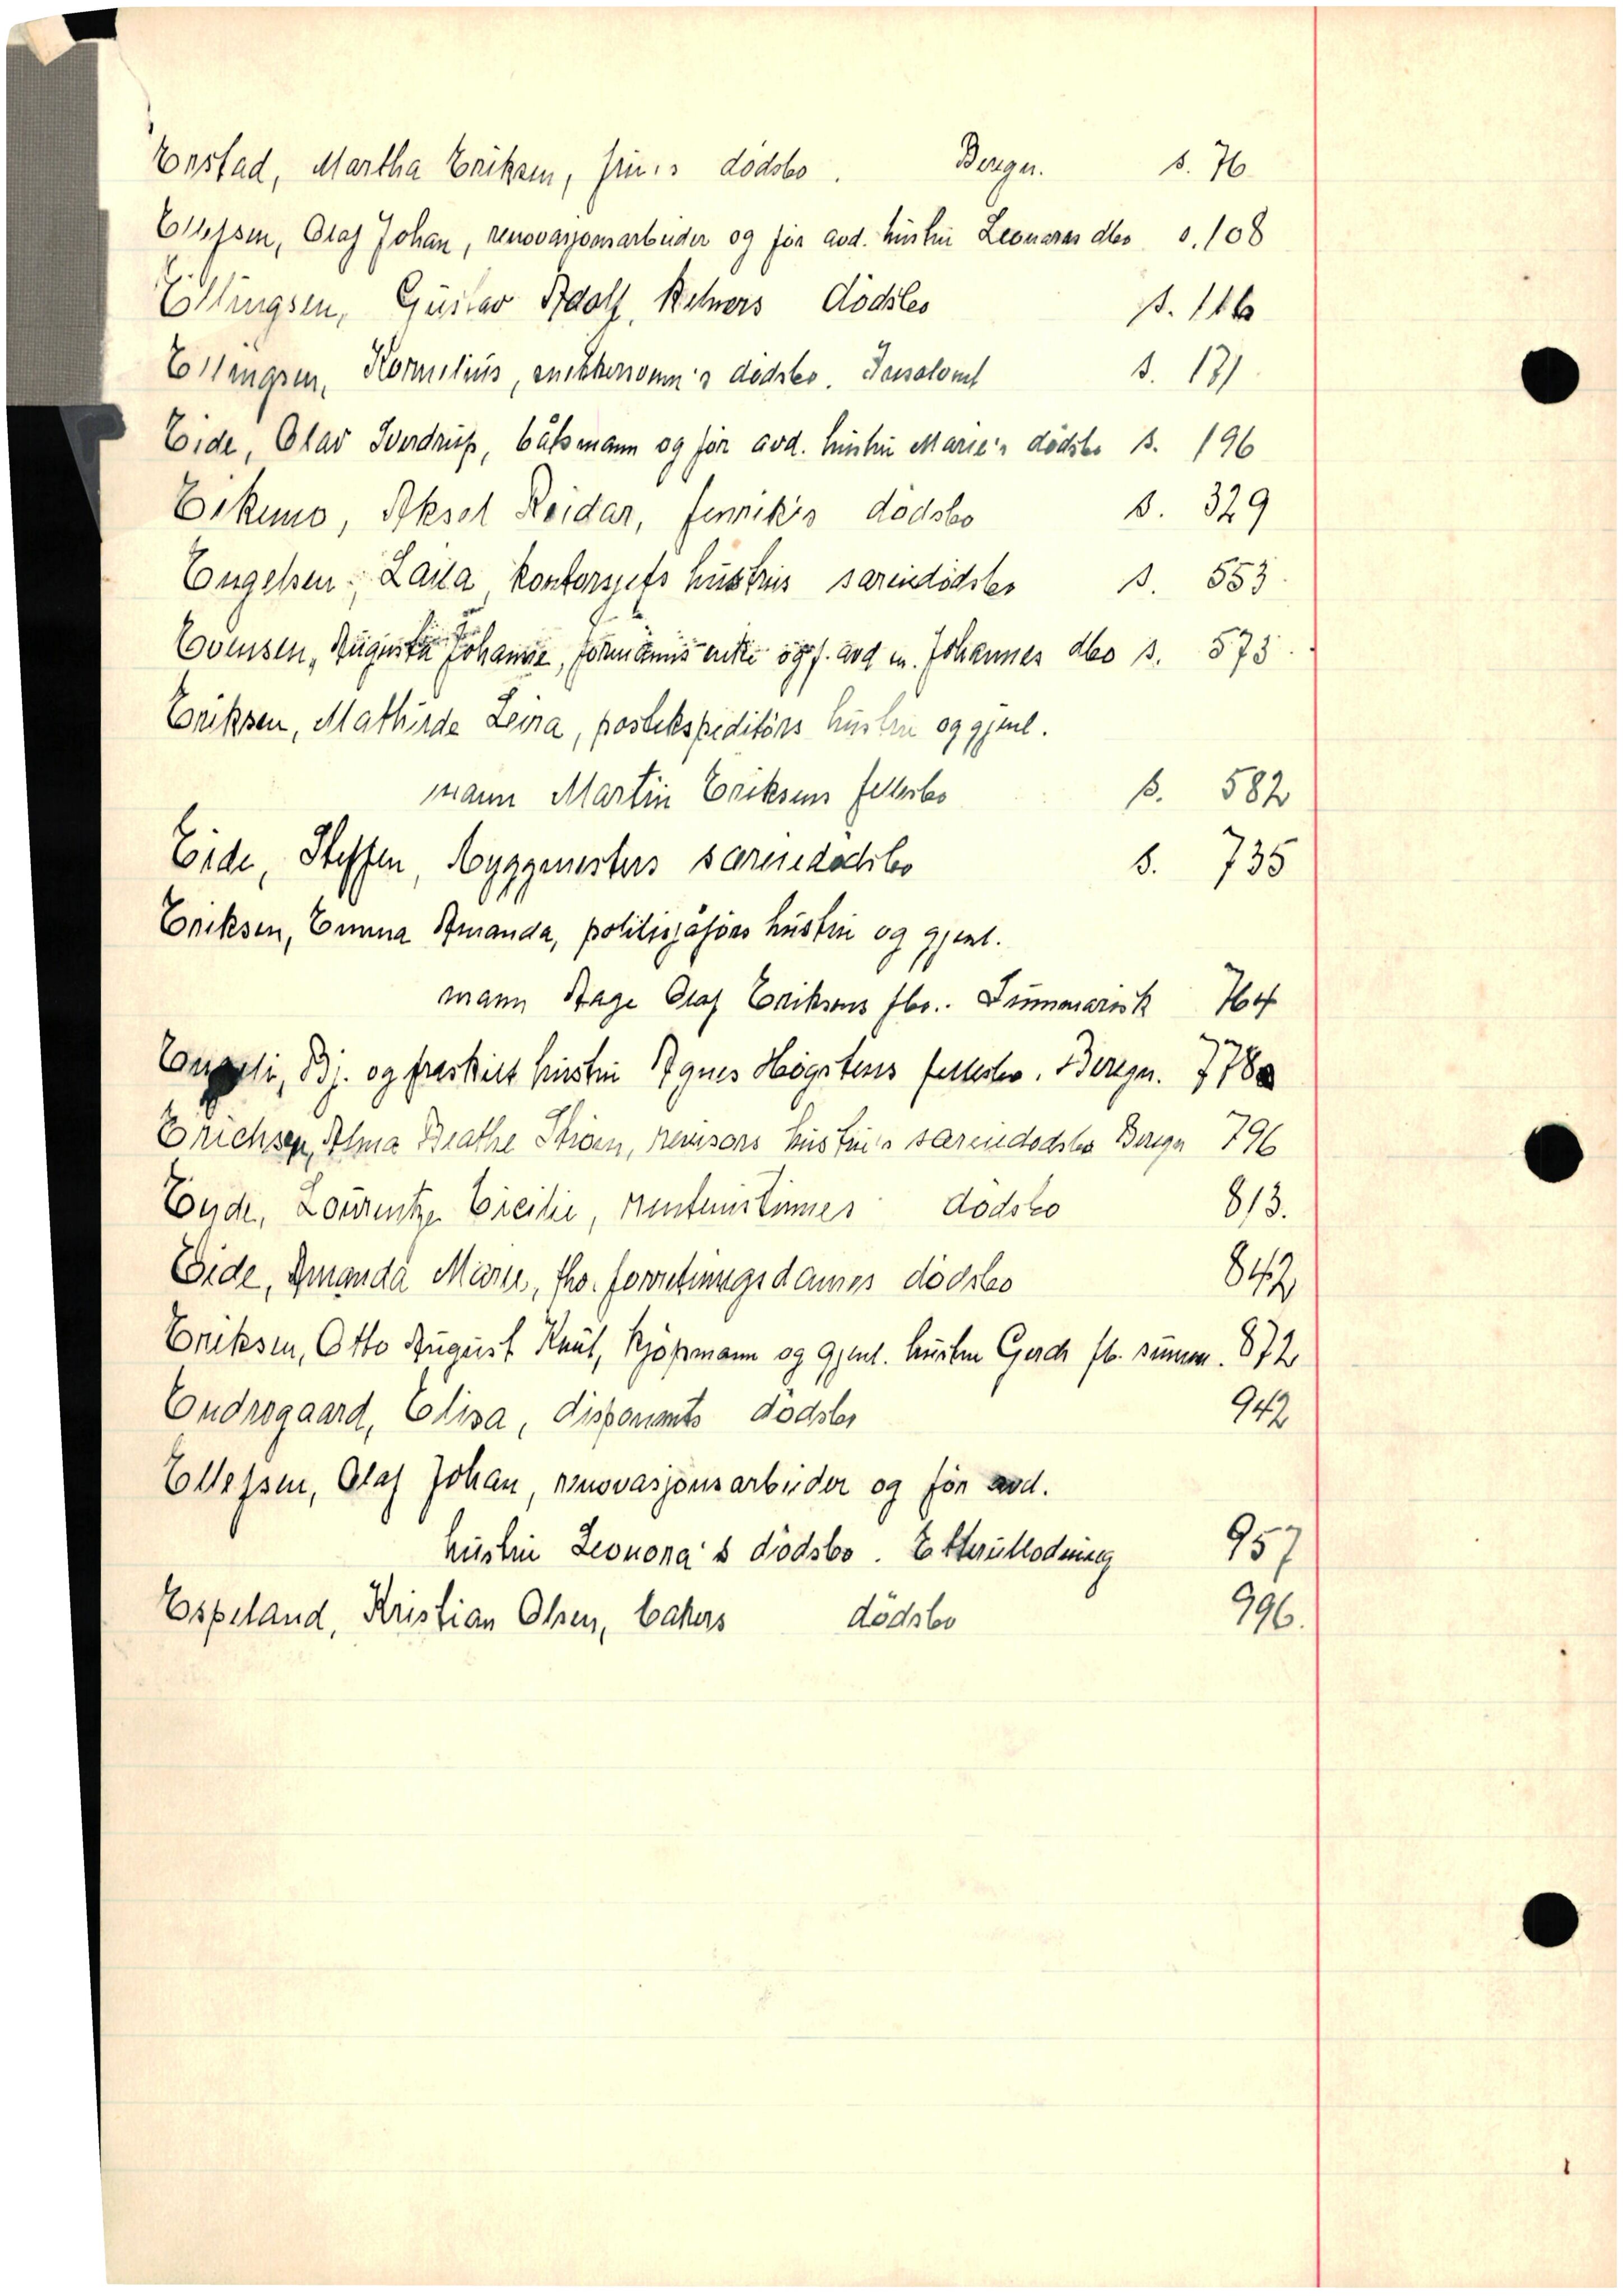 Enstad, Martha Eriksen, frues dödsbo. Beregn. s. 76
Ellefsen, Olaf Johan, renovasjonsarbeider og för avd. hustru Leonaras dbo s. 108
Ellingsen, Gustav Adolf, kelners dödsbo s. 116
Ellingsen, Kornelius, dödsbo. s. 131
Eide, Olav Sverdrup, båtsmann og för avd. hustru Marie's dödsbo s. 196
Eikemo, Aksel Reidar, fenriks dödsbo s. 329
Engelsen, Laila, kontorsjefs hustrus særeiedödsbo s. 553.
Evensen, Augusta Johanne, formanns enke og f. avd m. Johannes dbo s. 573.
Eriksen, Mathilde Leina, postekspeditörs hustru og gjenl.
mann Martin Eriksens fellesbo s. 582
Eide, Steffen, byggmesters særeiedödsbo s. 735
Eriksen, Emma Amanda, politisjåförs hustru og gjenl.
mann Aage Olaf Eriksens fbo. Summarisk 764
Bj. og fraskilt hustru Agnes Högstens fellesbo. Beregn. 778
Erichsen, Alma Beathe Ström, revisors hustru's særeiedödsbo Beregn 796
Eide, Lourentze Cicilie, rentenistinnes dödsbo 813.
Eide, Amanda Marie, fhv. forretningsdames dödsbo 842
Eriksen, Otto August Knut, kjöpmann og gjenl. hustru Gerd fb. summ. 872
Endregaard, Elisa, disponents dödsbo 942
Ellefsen, Olaf Johan, renovasjonsarbeider og för avd.
hustru Leonora's dödsbo. Etterutlodning 957
Espeland, Kristian Olsen, bakers dödsbo 996.